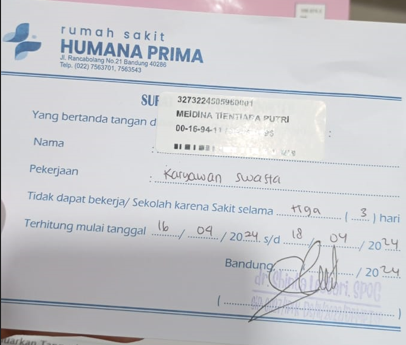 rumah sakit
HUMANA PRIMA
Jl. Rancabolang No.21 Bandung 40286
Telp. (022) 7563701, 7563543
SUR
3273224505960001
MEIDINA TIENTIARA PUTRI
00-16-94-11
Yang bertanda tangan d :
Nama :
Pekerjaan : Karyawan swasta
Tidak dapat bekerja/ Sekolah karena Sakit selama tiga ( 3 ) hari
Terhitung mulai tanggal 16 / 04 / 2024 s/d 18 / 04 / 2024
Bandung / 2024
( )